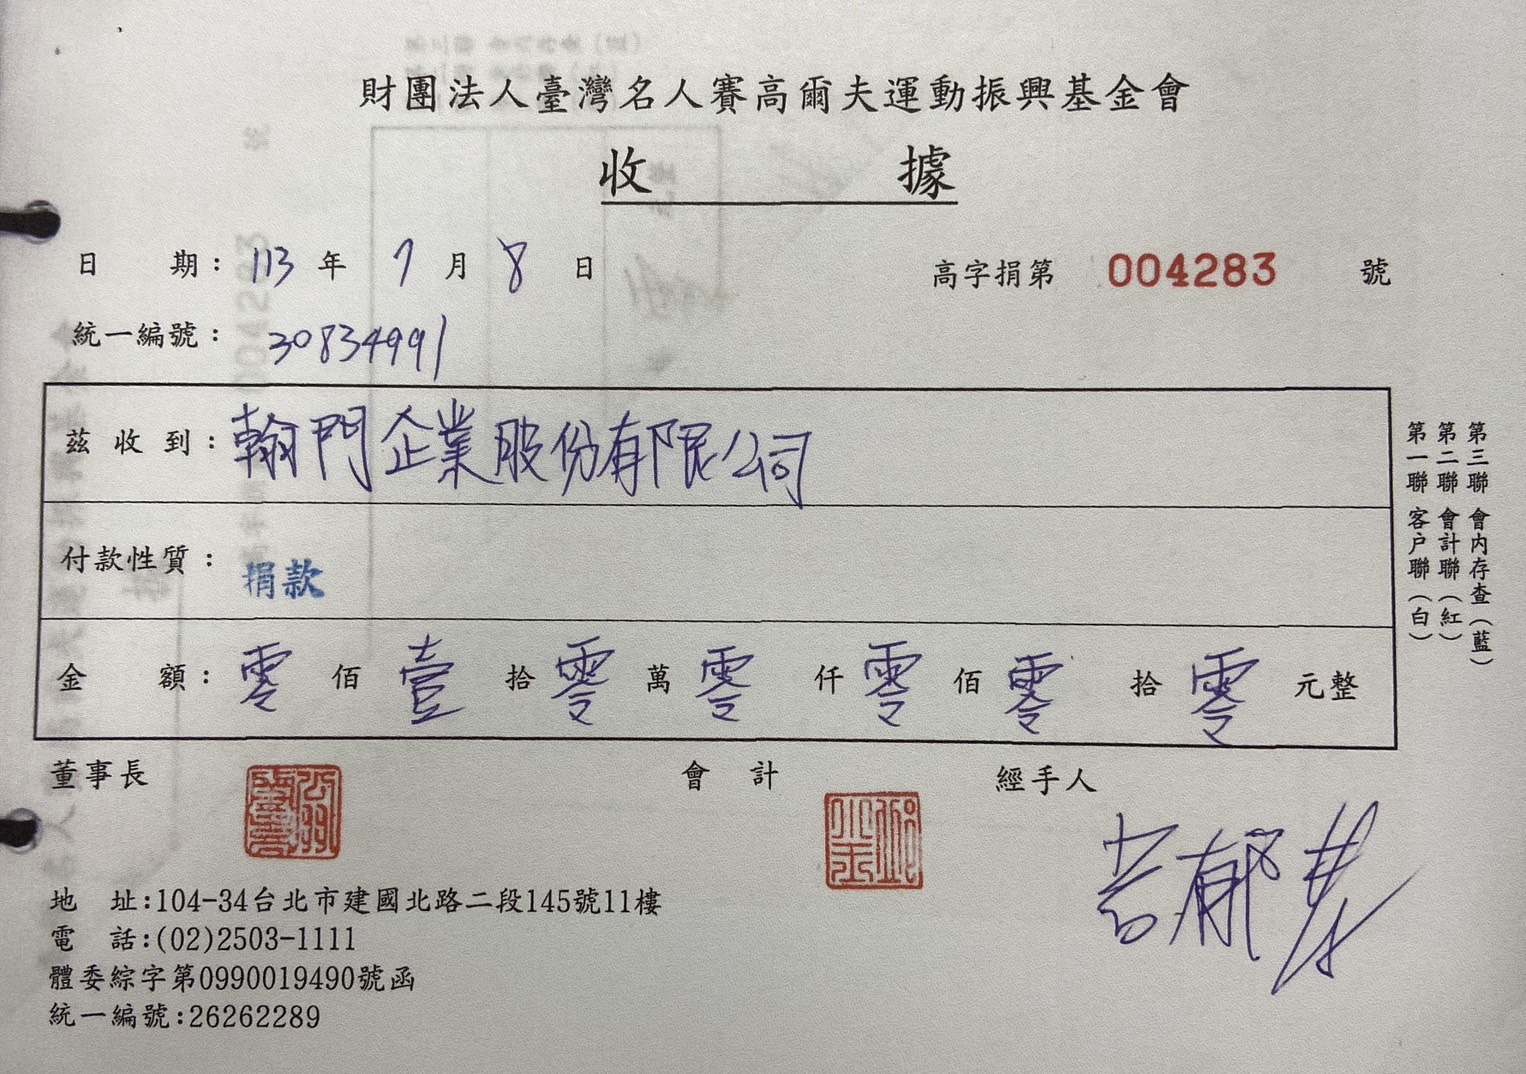 財團法人臺灣名人賽高爾夫運動振興基金會
收 據
日 期：113 年 7 月 8 日 高字捐第 004283 號
統一編號：30834991
茲收到：翰門企業股份有限公司
付款性質：捐款
金 額：零 佰 壹 拾 零 萬 零 仟 零 佰 零 拾 零 元整
第一聯 客戶聯（白）
第二聯 會計聯（紅）
第三聯 會內存查（藍）
董事長 會 計 經手人
地 址:104-34台北市建國北路二段145號11樓
電 話:(02)2503-1111
體委綜字第0990019490號函
統一編號:26262289